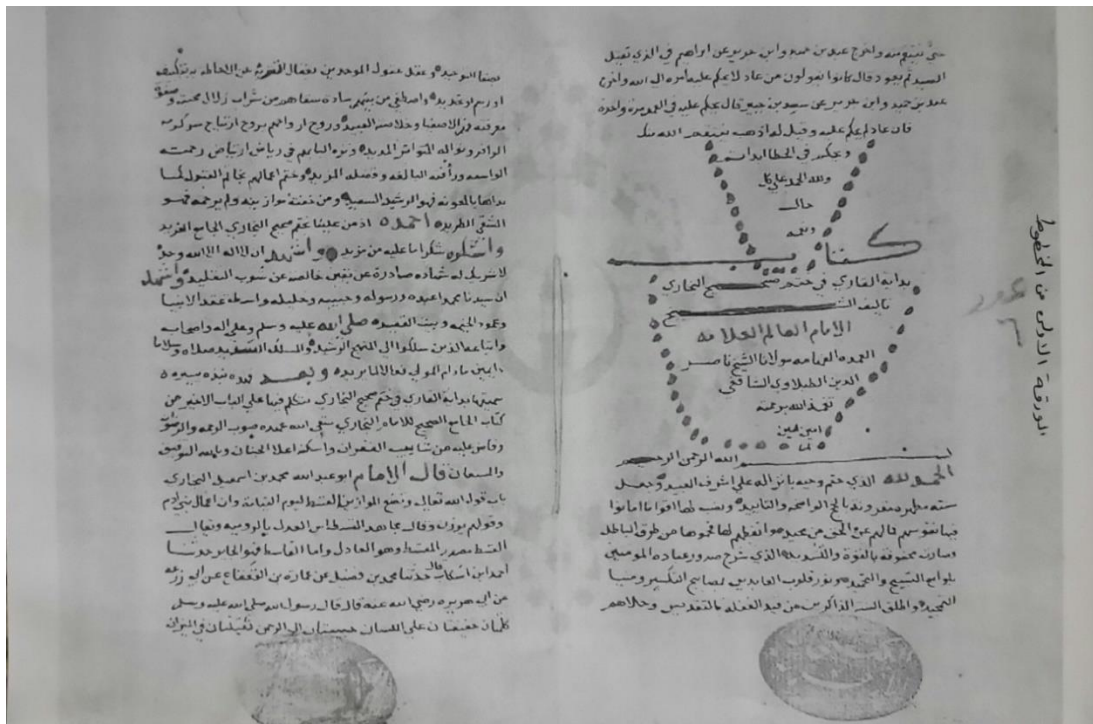 حتى ينتقم منه واخرج عبد بن حميد وابن جرير عن ابراهيم في الذي يقتل
الصيد ثم يعود قال كانوا يقولون من عاد لا يحكم عليه امره الى الله واخرج
عبد بن حميد وابن جرير عن سعيد بن جبير قال يحكم عليه في العمد مرة واحدة
فان عاد لم يحكم عليه وقيل له اذهب ينتقم الله منك
ويحكم في الخطا ابدا
ولله الحمد على كل
حال
ونعمه
كتاب
بداية القاري في ختم صحيح البخاري
تاليف الشيخ
الامام العالم العلامه
العمده الفهامه مولانا الشيخ ناصر
الدين الطبلاوي الشافعي
تغمده الله برحمته
امين امين
بسم الله الرحمن الرحيم
الحمد لله الذي ختم وحيه بانزاله على اشرف العبيد وجعل
سنته مطهره مقرونة بالحجج الواضحه والتاييد ونصب لها اقواما اماتوا
فيها نفوسهم فالهم عن الحق من محيد صوانعهم لها فحموها من طرق الباطل
وصارت محفوفه بالقوة والتسديد الذي شرح صدور عباده المومنين
بلوامع التسبيح والتحميد ونور قلوب العابدين بمصابيح التكبير
التمجيد واطلق السنة الذاكرين من قيد الغفله بالتقديس وحلاهم
بصفا التوحيد وعقل عقول الموحدين عن الاحاطه
معرفته فهم الاصفيا وخلاصة العبيد وروح ارواحهم بروح
الوافر ونواله المتواتر المديد ونزه البابهم في رياض ارتياض رحمته
الواسعه ورأفته البالغه وفضله المزيد وختم اعمالهم بخاتم القبول كما
بداها بالمعونه فهو الرشيد السعيد ومن خفت موازينه ولم يرحمه فهو
الشقي الطريد احمده اذ من علينا بختم صحيح البخاري الجامع الفريد
واشكره شكرا ما عليه من مزيد واشهد ان لا اله الا الله وحده
لا شريك له شهادة صادرة عن يقين خالصه عن شوب التقليد واشهد
ان سيدنا محمدا عبده ورسوله وحبيبه وخليله واسطة عقد الانبيا
وبيت القصيد صلى الله عليه وسلم وعلى اله واصحابه
واتباعه الذين سلكوا الى المنهج الرشيد والمسلك السديد صلاة وسلاما
دايمين مادام المولى فعالا لما يريد وبعد فهذه نبذه يسيره
سميتها بداية القاري في ختم صحيح البخاري نتكلم فيها على الباب الاخير من
كتاب الجامع الصحيح للامام البخاري سقى الله عهده صوب الرحمه والرضوان
وافاض عليه من شابيب الغفران واسكنه اعلا الجنان وبالله التوفيق
والمستعان قال الامام ابو عبد الله محمد بن اسمعيل البخاري
باب قول الله تعالى ونضع الموازين القسط ليوم القيامة وان اعمال بني ادم
وقولهم يوزن وقال مجاهد القسطاس العدل بالروميه ويقال
القسط مصدر المقسط وهو العادل واما القاسط فهو الجاير حدثنا
احمد ابن اشكاب قال حدثنا محمد بن فضيل عن عماره بن القعقاع عن ابي زرعه
عن ابي هريره رضي الله عنه قال قال رسول الله صلى الله عليه وسلم
كلمتان خفيفتان على اللسان حبيبتان الى الرحمن ثقيلتان في الميزان
الورقة الاولى من المخطوط